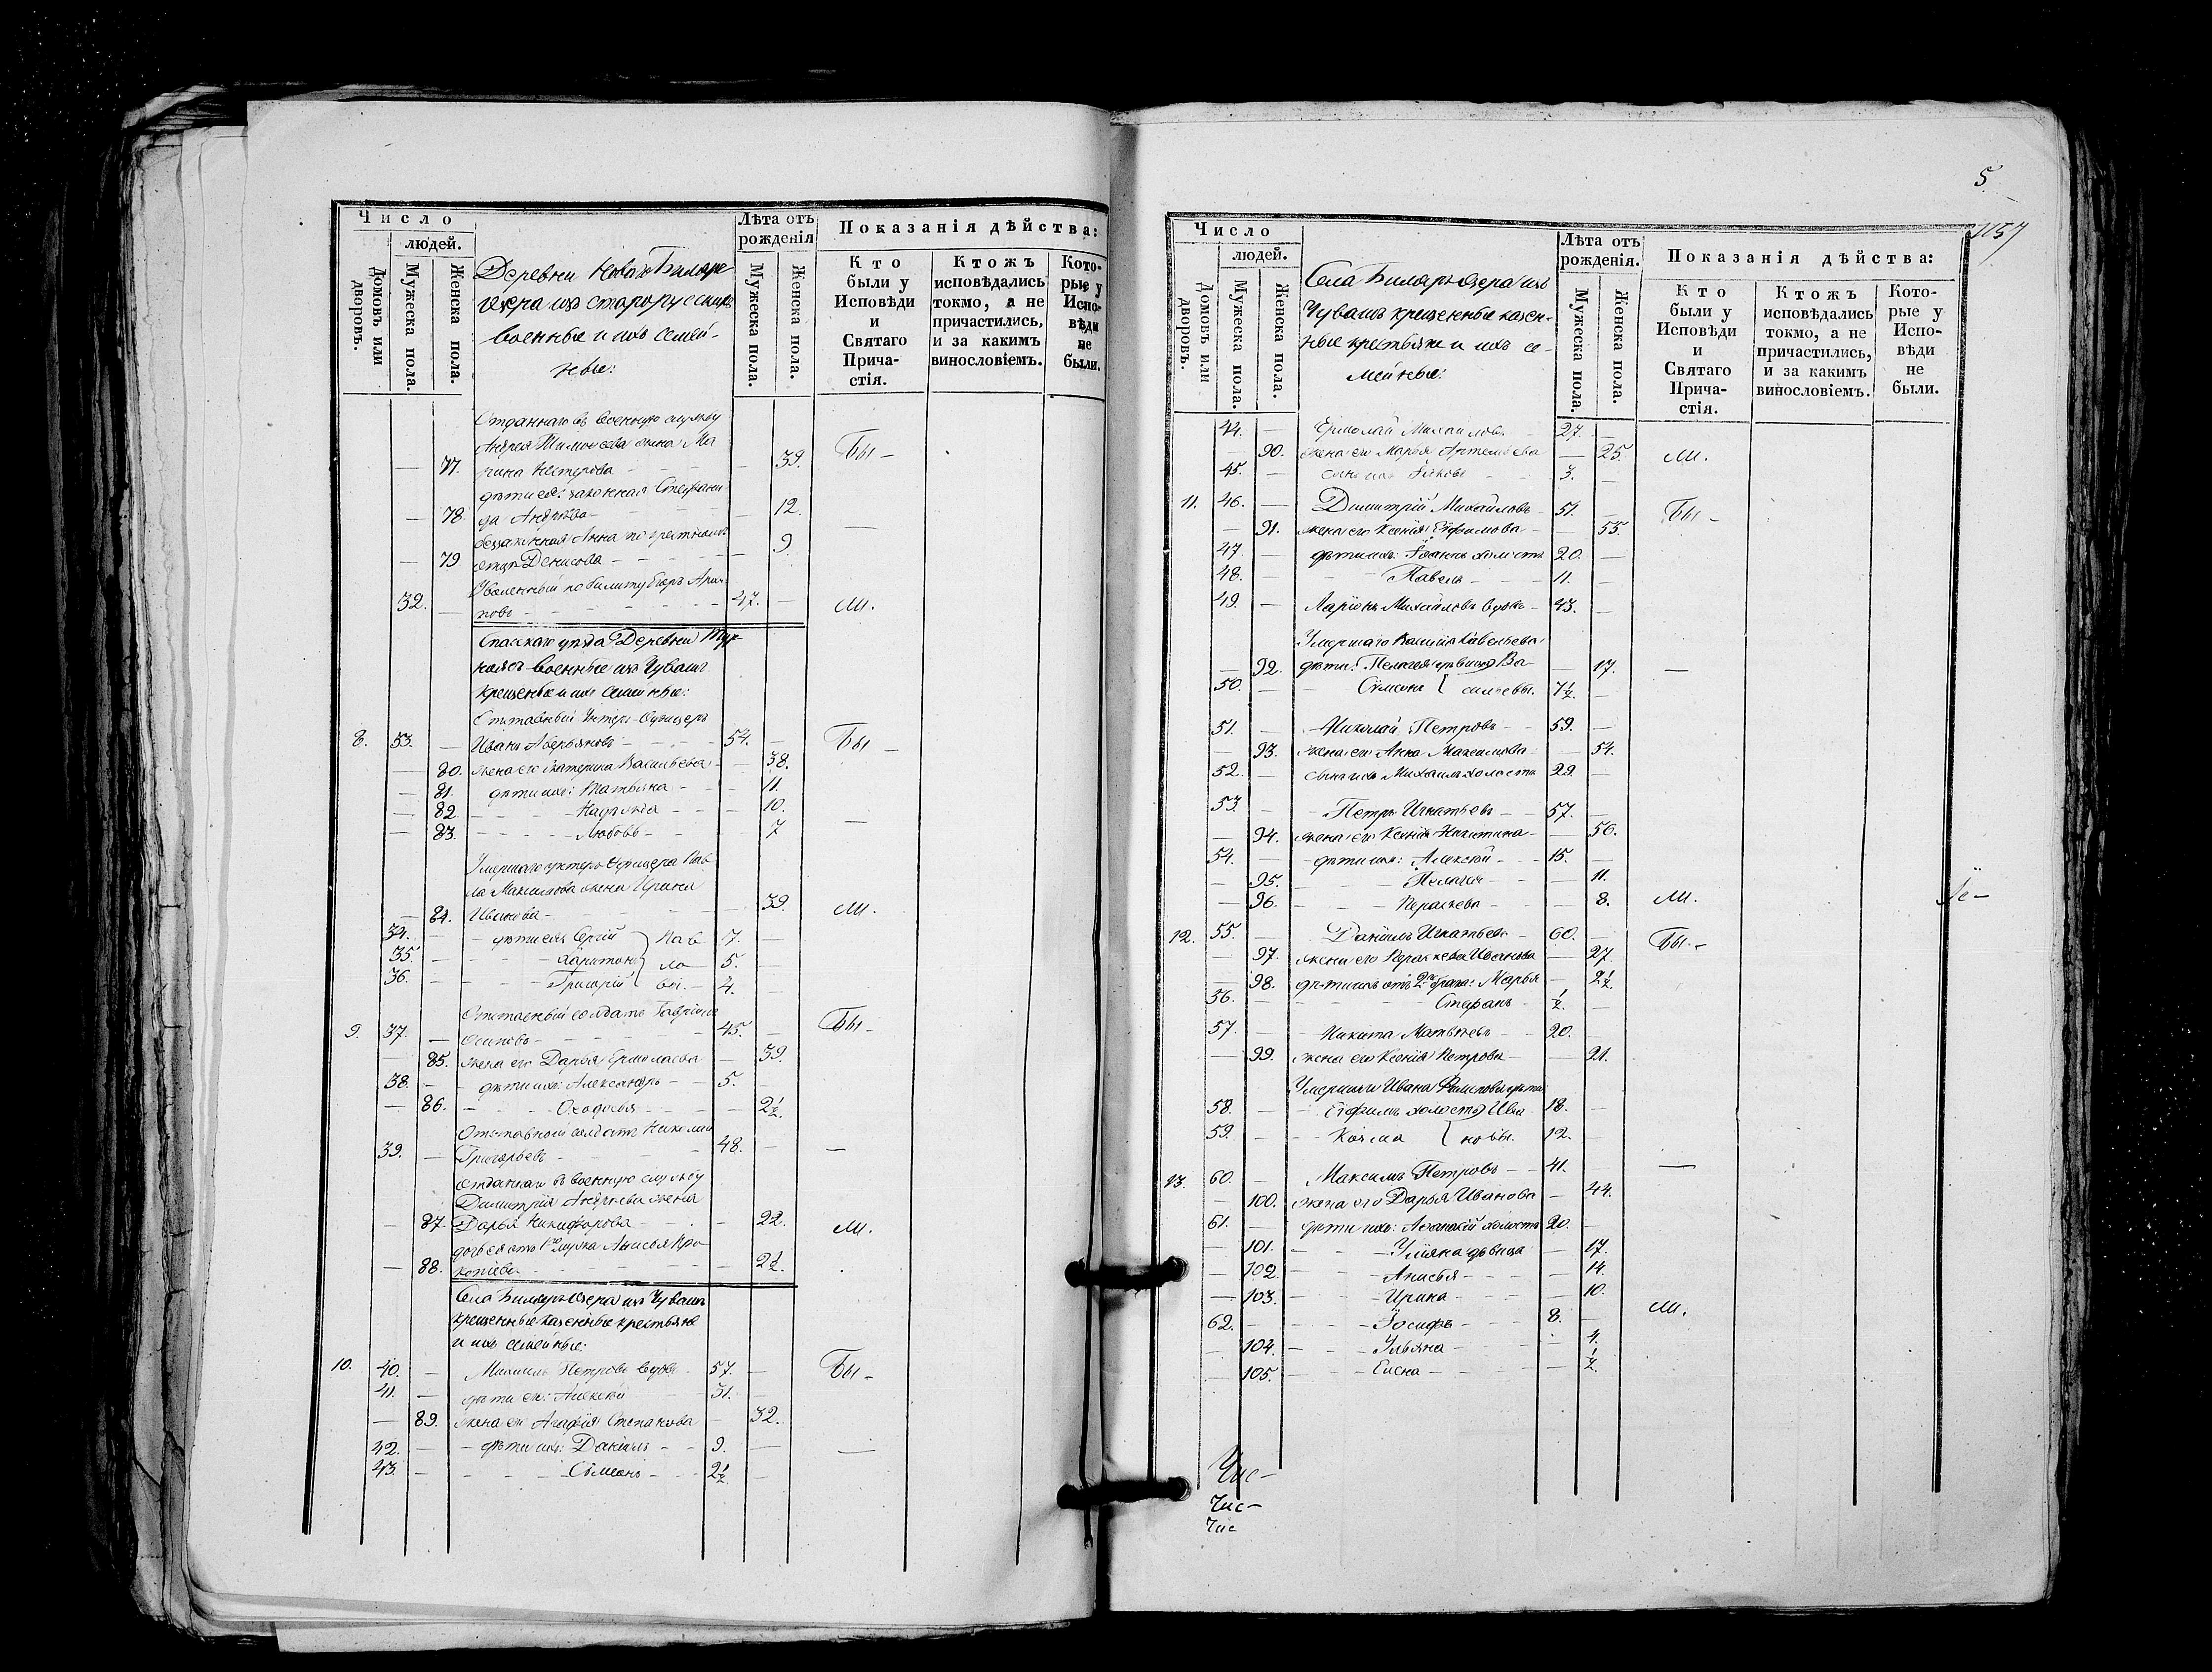 Число
людей.
Домовъ или дворовъ.
Мужеска пола.
Женска пола.
Деревни Новаго Биляръ
озера изъ старорусскихъ
военные и ихъ семей-
ные:
Лѣта отъ рожденія
Мужеска пола.
Женска пола.
Показанія дѣйства:
Кто были у Исповѣди и Святаго Прича-стія.
Ктожъ исповѣдались токмо, а не причастились, и за какимъ винословіемъ.
Кото-рые у Испо-вѣди не были.
Отданнаго въ военную службу
Андрея Тимофеева жена Ма
— 77. рина Нестерова — 39. Бы —
дѣти ея: законная Степани
— 78. да Андреева — 12.
беззаконная Анна по крестномъ
— 79 отцѣ Денисова — 9.
Уволенный по билету Егоръ Архи
32. — повъ — 47. — ли.
Спасскаго уѣзда Деревни Тур
военные изъ Чувашъ
крещеные и ихъ семейные:
Отставный Унтеръ-Офицеръ
8. 33. — Иванъ Аверьяновъ — 54. — Бы —
— 80. жена его Екатерина Васильева — 38.
— 81. дѣти ихъ: Татьяна — 11.
— 82 — Надежда — 10.
— 83. — Любовь — 7
Умершаго унтеръ Офицера Пав
ла Максимова жена Ирина
— 84. Иванова — 39. ли.
34. — дѣти ея: Сергій } Пав 7. —
35. — Харитонъ } ло 5. —
36. — Григорій } вы. — 4.
Отставный солдатъ Гаврила
9. 37. — Осиповъ — 45. — Бы —
— 85. жена его Дарья Ермолаева — 39.
38. — дѣти ихъ: Александръ — 5. —
— 86. — Феодосья — 2½
Отставной солдатъ Николай
39. — Григорьевъ — 48. — —
Отданнаго въ военную службу
Димитрія Андреева жена
— 87. Дарья Никифорова — 22. ли.
дочь ея отъ 1го мужа Анисья Про-
— 88. копіева — 2½.
Села Биляръ Озера изъ Чувашъ
крещенные казенные крестьяне
и ихъ семейные:
10. 40. — Михаилъ Петровъ вдовъ 57. — Бы —
41. — дѣти его: Алексѣй — 31. —
— 89. жена его Агафія Степанова — 32.
42. — дѣти ихъ: Даніилъ — 9. — —
43. — Сѵмеонъ — 2½ —
5.
1157
Число
людей.
Домовъ или дворовъ.
Мужеска пола.
Женска пола.
Села Биляръ Озера изъ
Чувашъ крещенные казен-
ные крестьяне и ихъ се-
мейные:
Лѣта отъ рожденія.
Мужеска пола.
Женска пола.
Показанія дѣйства:
Кто были у Исповѣди и Святаго Прича-стія.
Ктожъ исповѣдались токмо, а не причастились, и за какимъ винословіемъ.
Кото-рые у Испо-вѣди не были.
44. — Ермолай Михайловъ 27. —
— 90. жена его Марья Артемьева — 25. ли.
45. — сынъ ихъ Іаковъ 3. —
11. 46. — Димитрій Михайловъ 51. — Бы —
— 91. жена его Ксенія Ефимова — 55.
47. — дѣти ихъ: Іоаннъ холостъ 20. —
48. — Павелъ — 11. —
49. — Ларіонъ Михайловъ вдовъ — 43. —
Умершаго Василія Савельева
— 92. дѣти: Пелагея дѣвица } Ва- — 17. —
50. — Сѵмеонъ { сильевы. 7½. —
51. — Николай Петровъ — 59. —
— 93. жена его Анна Максимова — 54.
52. — сынъ ихъ Михаилъ холостъ 29. —
53. — Петръ Игнатьевъ — 57. —
— 94. жена его Ксенія Никитина — 56.
54. — дѣти ихъ: Алексѣй — 15. —
— 95. — Пелагія — 11.
— 96. — Параскева — 8. ли.
12. 55. — Даніилъ Игнатьевъ — 60. — Бы —
— 97. жена его Параскева Иванова — 27
— 98. дѣти ихъ отъ 2го брака: Марья — 2½.
56. — Стефанъ — ½. —
57. — Никита Матвѣевъ — 20. —
— 99. жена его Ксенія Петрова — 21.
Умершаго Ивана Филиппова дѣти
58. — Ефимъ холостъ } Ива 18. —
59. — Козма { новы. 12. —
13. 60. — Максимъ Петровъ — 41. — —
— 100. жена его Дарья Иванова — 44.
61. — дѣти ихъ: Афанасій холостъ 20. —
— 101. — Уліяна дѣвица — 17.
— 102. — Анисья — 14.
— 103. — Ирина — 10.
62. — Іосифъ — 8. — ли.
— 104. — Ульяна — 4.
— 105. — Елена — ½.
Чис-
Чис-
Чис